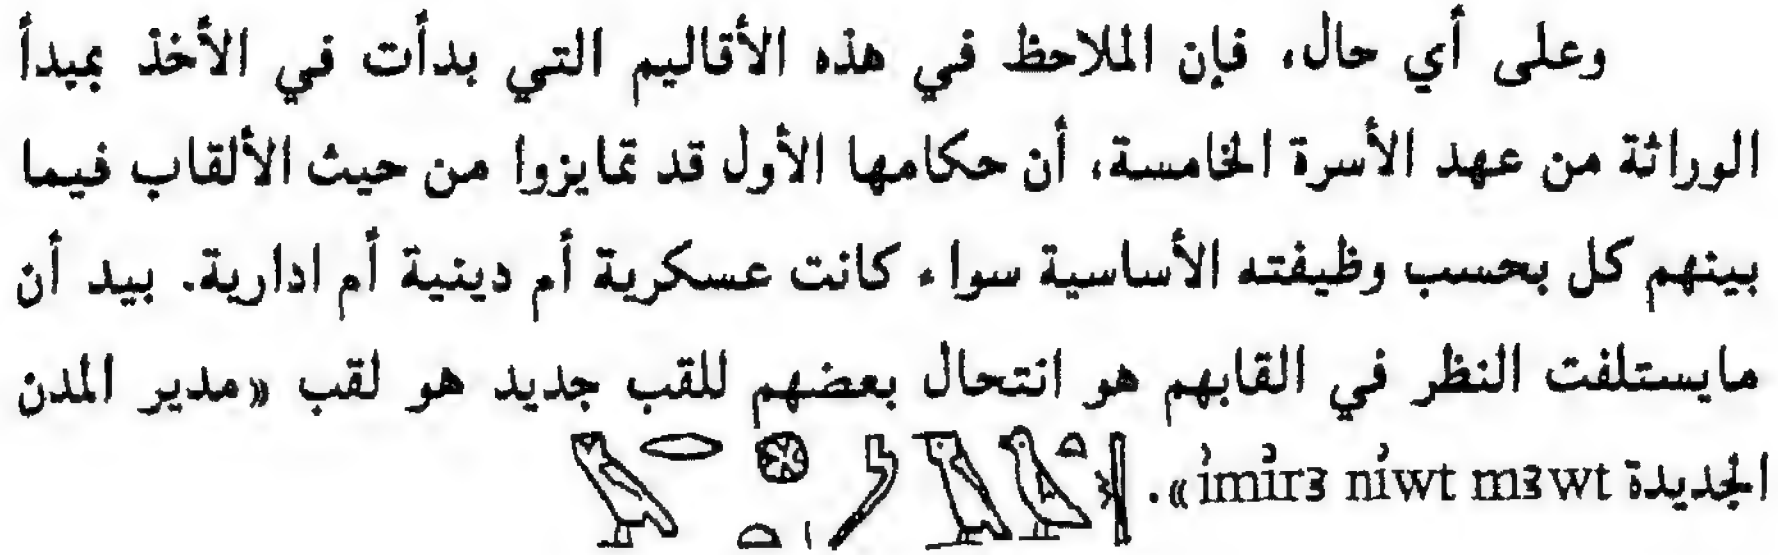 وعلى أي حال، فإن الملاحظ في هذه الأقاليم التي بدأت في الأخذ بمبدأ
الوراثة من عهد الأسرة الخامسة، أن حكامها الأول قد تمايزوا من حيث الألقاب فيما
بينهم كل بحسب وظيفته الأساسية سواء كانت عسكرية أم دينية أم ادارية. بيد أن
مايستلفت النظر في القابهم هو انتحال بعضهم للقب جديد هو لقب «مدير المدن
الجديدة ỉmỉr3 nỉwt m3wt».